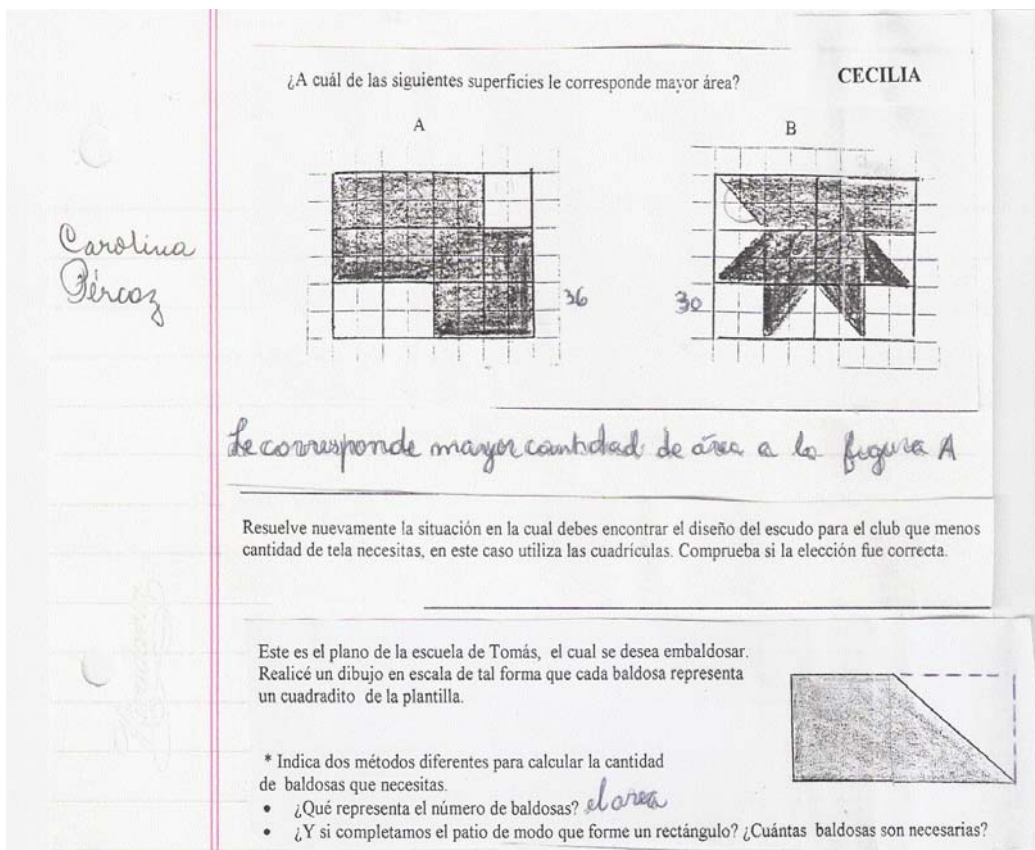 ¿A cuál de las siguientes superficies le corresponde mayor área?
CECILIA
A
B
Carolina
36
30
Le corresponde mayor cantidad de área a la figura A
Resuelve nuevamente la situación en la cual debes encontrar el diseño del escudo para el club que menos
cantidad de tela necesitas, en este caso utiliza las cuadrículas. Comprueba si la elección fue correcta.
Este es el plano de la escuela de Tomás, el cual se desea embaldosar.
Realicé un dibujo en escala de tal forma que cada baldosa representa
un cuadradito de la plantilla.
* Indica dos métodos diferentes para calcular la cantidad
de baldosas que necesitas.
• ¿Qué representa el número de baldosas? el area
• ¿Y si completamos el patio de modo que forme un rectángulo? ¿Cuántas baldosas son necesarias?